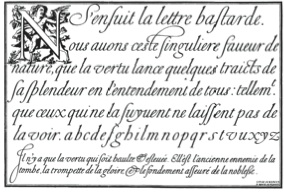 S'ensuit la lettre bastarde.
Nous auons ceste singuliere faueur de
nature, que la vertu lance quelques traicts de
sa splendeur en l'entendement de tous: tellemt.
que ceux qui ne la suyuent ne laissent pas de
la voir. a b c d e f g h i l m n o p q r s t v u x y z
Il n'y a que la vertu qui soit beaulte & esleuee. Ell'est l'ancienne ennemie de la
tombe, la trompette de la gloire, & le fondement asseuré de la noblesse.